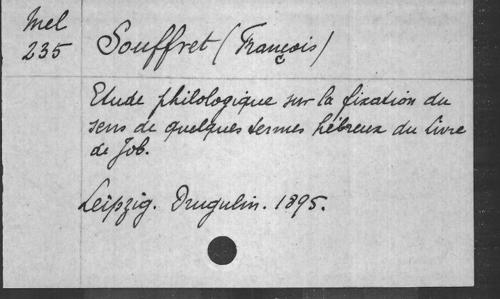 Mel
235
Souffret (François)
Etude philologique sur la fixation du
sens de quelques termes hébreux du livre
de Job.
Leipzig. Drugulin. 1895.